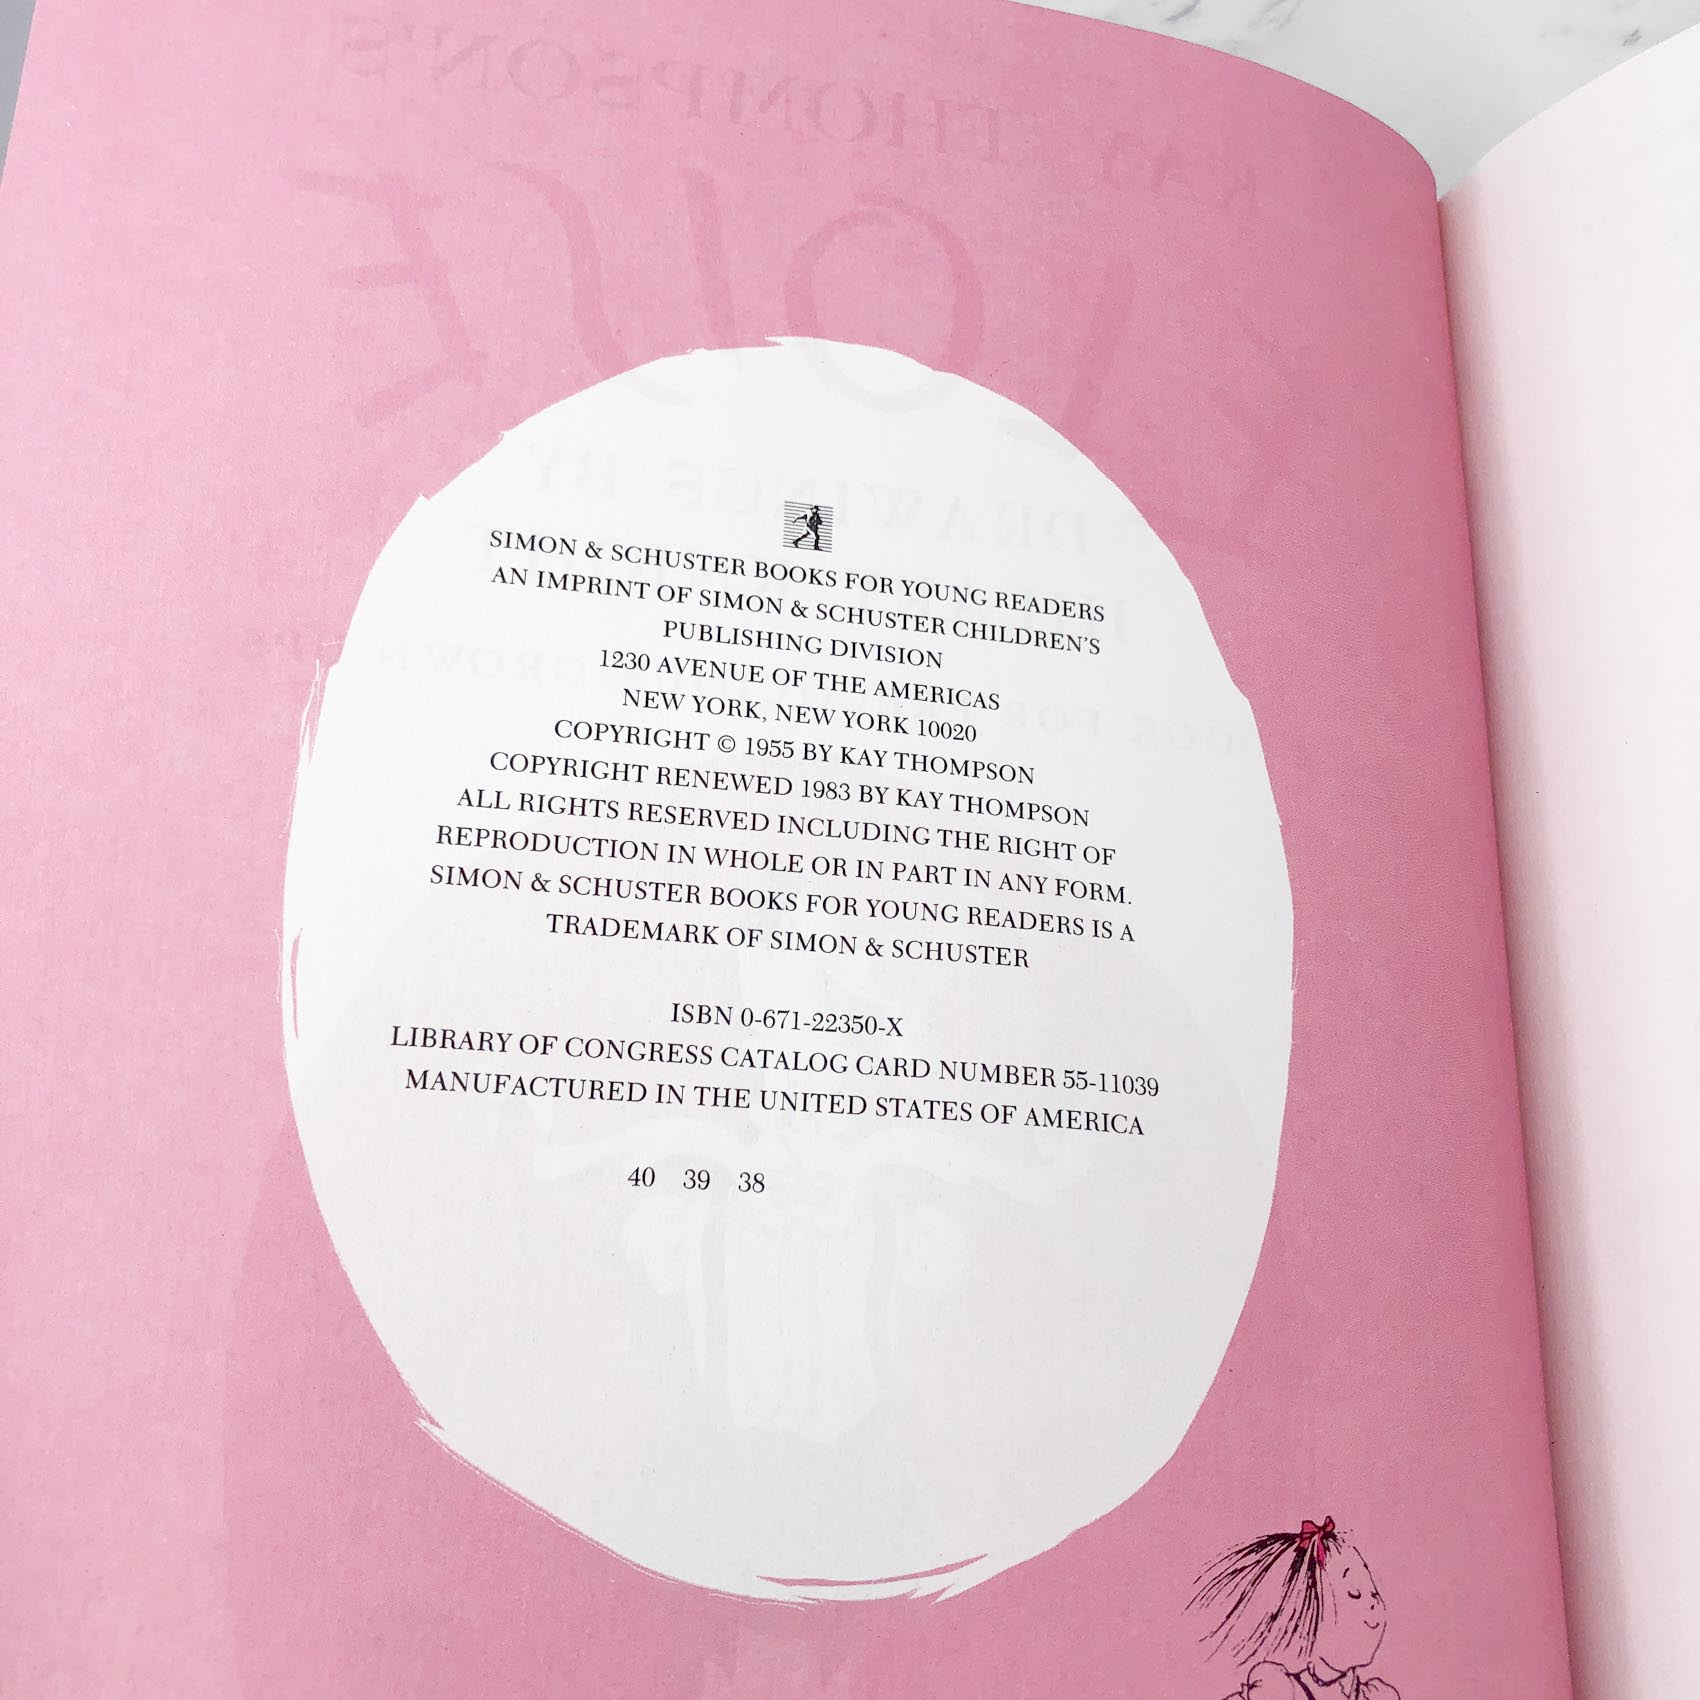 SIMON & SCHUSTER BOOKS FOR YOUNG READERS
AN IMPRINT OF SIMON & SCHUSTER CHILDREN'S
PUBLISHING DIVISION
1230 AVENUE OF THE AMERICAS
NEW YORK, NEW YORK 10020
COPYRIGHT © 1955 BY KAY THOMPSON
COPYRIGHT RENEWED 1983 BY KAY THOMPSON
ALL RIGHTS RESERVED INCLUDING THE RIGHT OF
REPRODUCTION IN WHOLE OR IN PART IN ANY FORM.
SIMON & SCHUSTER BOOKS FOR YOUNG READERS IS A
TRADEMARK OF SIMON & SCHUSTER
ISBN 0-671-22350-X
LIBRARY OF CONGRESS CATALOG CARD NUMBER 55-11039
MANUFACTURED IN THE UNITED STATES OF AMERICA
40 39 38